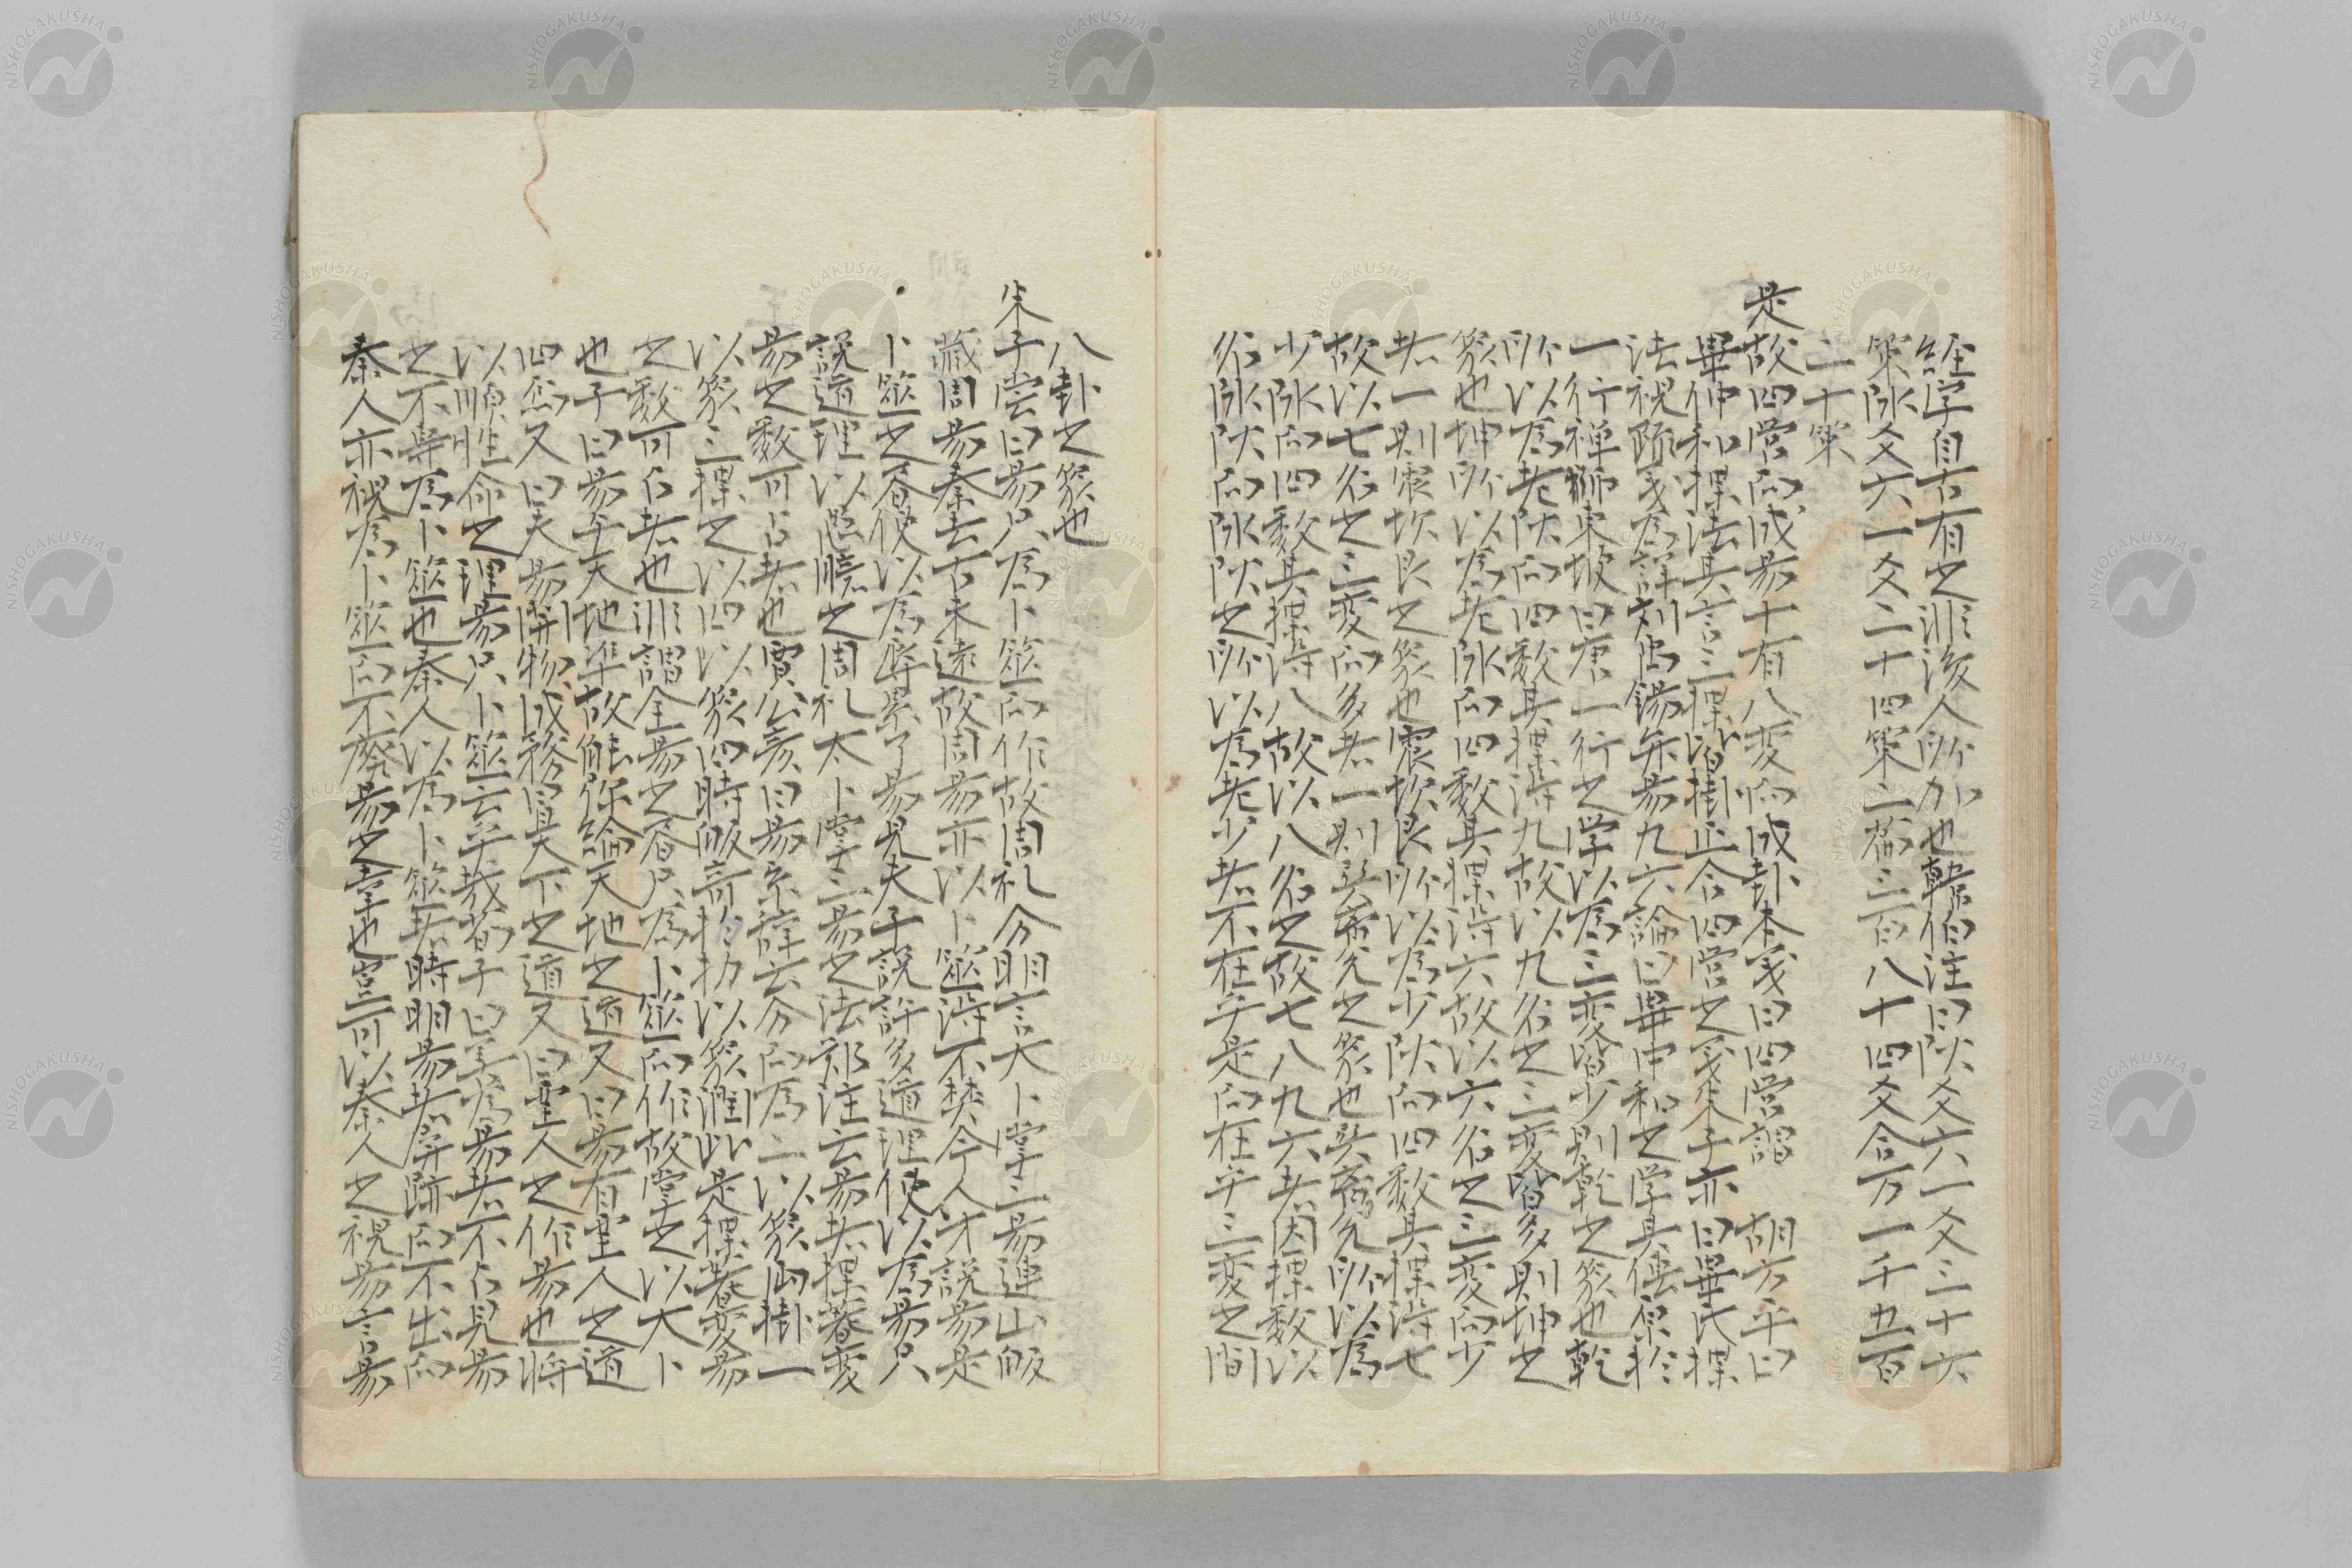 經字自古有之非後人所加也韓伯注曰陽爻六一爻三十六
策陰爻六一爻二十四策二篇三百八十四爻合万一千五百
二十策
是故四営而成易十有八変而成卦本義曰四営謂 胡方平曰
畢仲和揲法其言三揲皆掛正合四営之義朱子亦曰畢氏揲
法視疏義為詳刘禹錫弁易九六論曰畢中和之学其伝原於
一行禅師東坡曰唐一行之学以為三変皆少則乾之象也乾
所以為老陽而四数其揲得九故以九名之三変皆多則坤之
象也坤所以為老陰而四数其揲得六故以六名之三変而少
者一則震坎艮之象也震坎艮所以為少陽而四数其揲得七
故以七名之三変而多者一則巽离兌之象也巽离兌所以為
少陰而四数其揲得八故以八名之故七八九六者因揲数以
名陰陽而陰陽之所以為老少者不在乎是而在乎三変之間
八卦之象也
朱子嘗曰易只為卜筮而作故周礼分明言大卜掌三易連山皈
藏周易秦去古未遠故周易亦以卜筮得不焚今人才説易是
卜筮之書便以為辱累了易見夫子説許多道理便以為易只
説道理以愚臆之周礼太卜掌三易之法郑注云易者揲蓍変
易之数可占者也賈公彦曰易系辞云分而為二以象両掛一
以象三揲之以四以象四時皈奇於扐以象潤此是揲蓍変易
之数可占者也非謂全易之書只為卜筮而作故掌之以大卜
也子曰易与天地準故能弥綸天地之道又曰易有聖人之道
四焉又曰夫易開物成務冒天下之道又曰聖人之作易也将
以順性命之理易只卜筮云乎哉荀子曰善為易者不占見易
之不専為卜筮也秦人以為卜筮者時明易者屏跡而不出而
秦人亦視為卜筮而不廢易之幸也豈可以秦人之視易言易